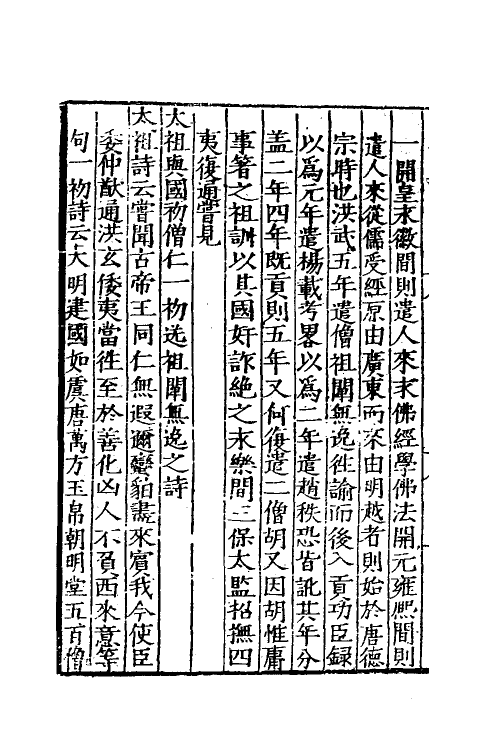 一開皇永徽間則遣人來求佛經學佛法開元雍熙間則
遣人來從儒受經原由廣東而來由明越者則始於唐德
宗時也洪武五年遣僧祖闡無逸徃諭而後入貢功臣錄
以爲元年遣楊載考畧以爲二年遣趙秩恐皆訛其年分
盖二年四年既貢則五年又何復遣二僧胡又因胡惟庸
事箸之祖訓以其國奸詐絶之永樂間三保太監招撫四
夷復通嘗見
太祖與國初僧仁一物送祖闡無逸之詩
太祖詩云嘗聞古帝王同仁無遐邇蠻貊盡來賓我今使臣
委仲猷通洪玄倭夷當徃至於善化凶人不負西來意等
句一物詩云大明建國如虞唐萬方玉帛朝明堂五百僧